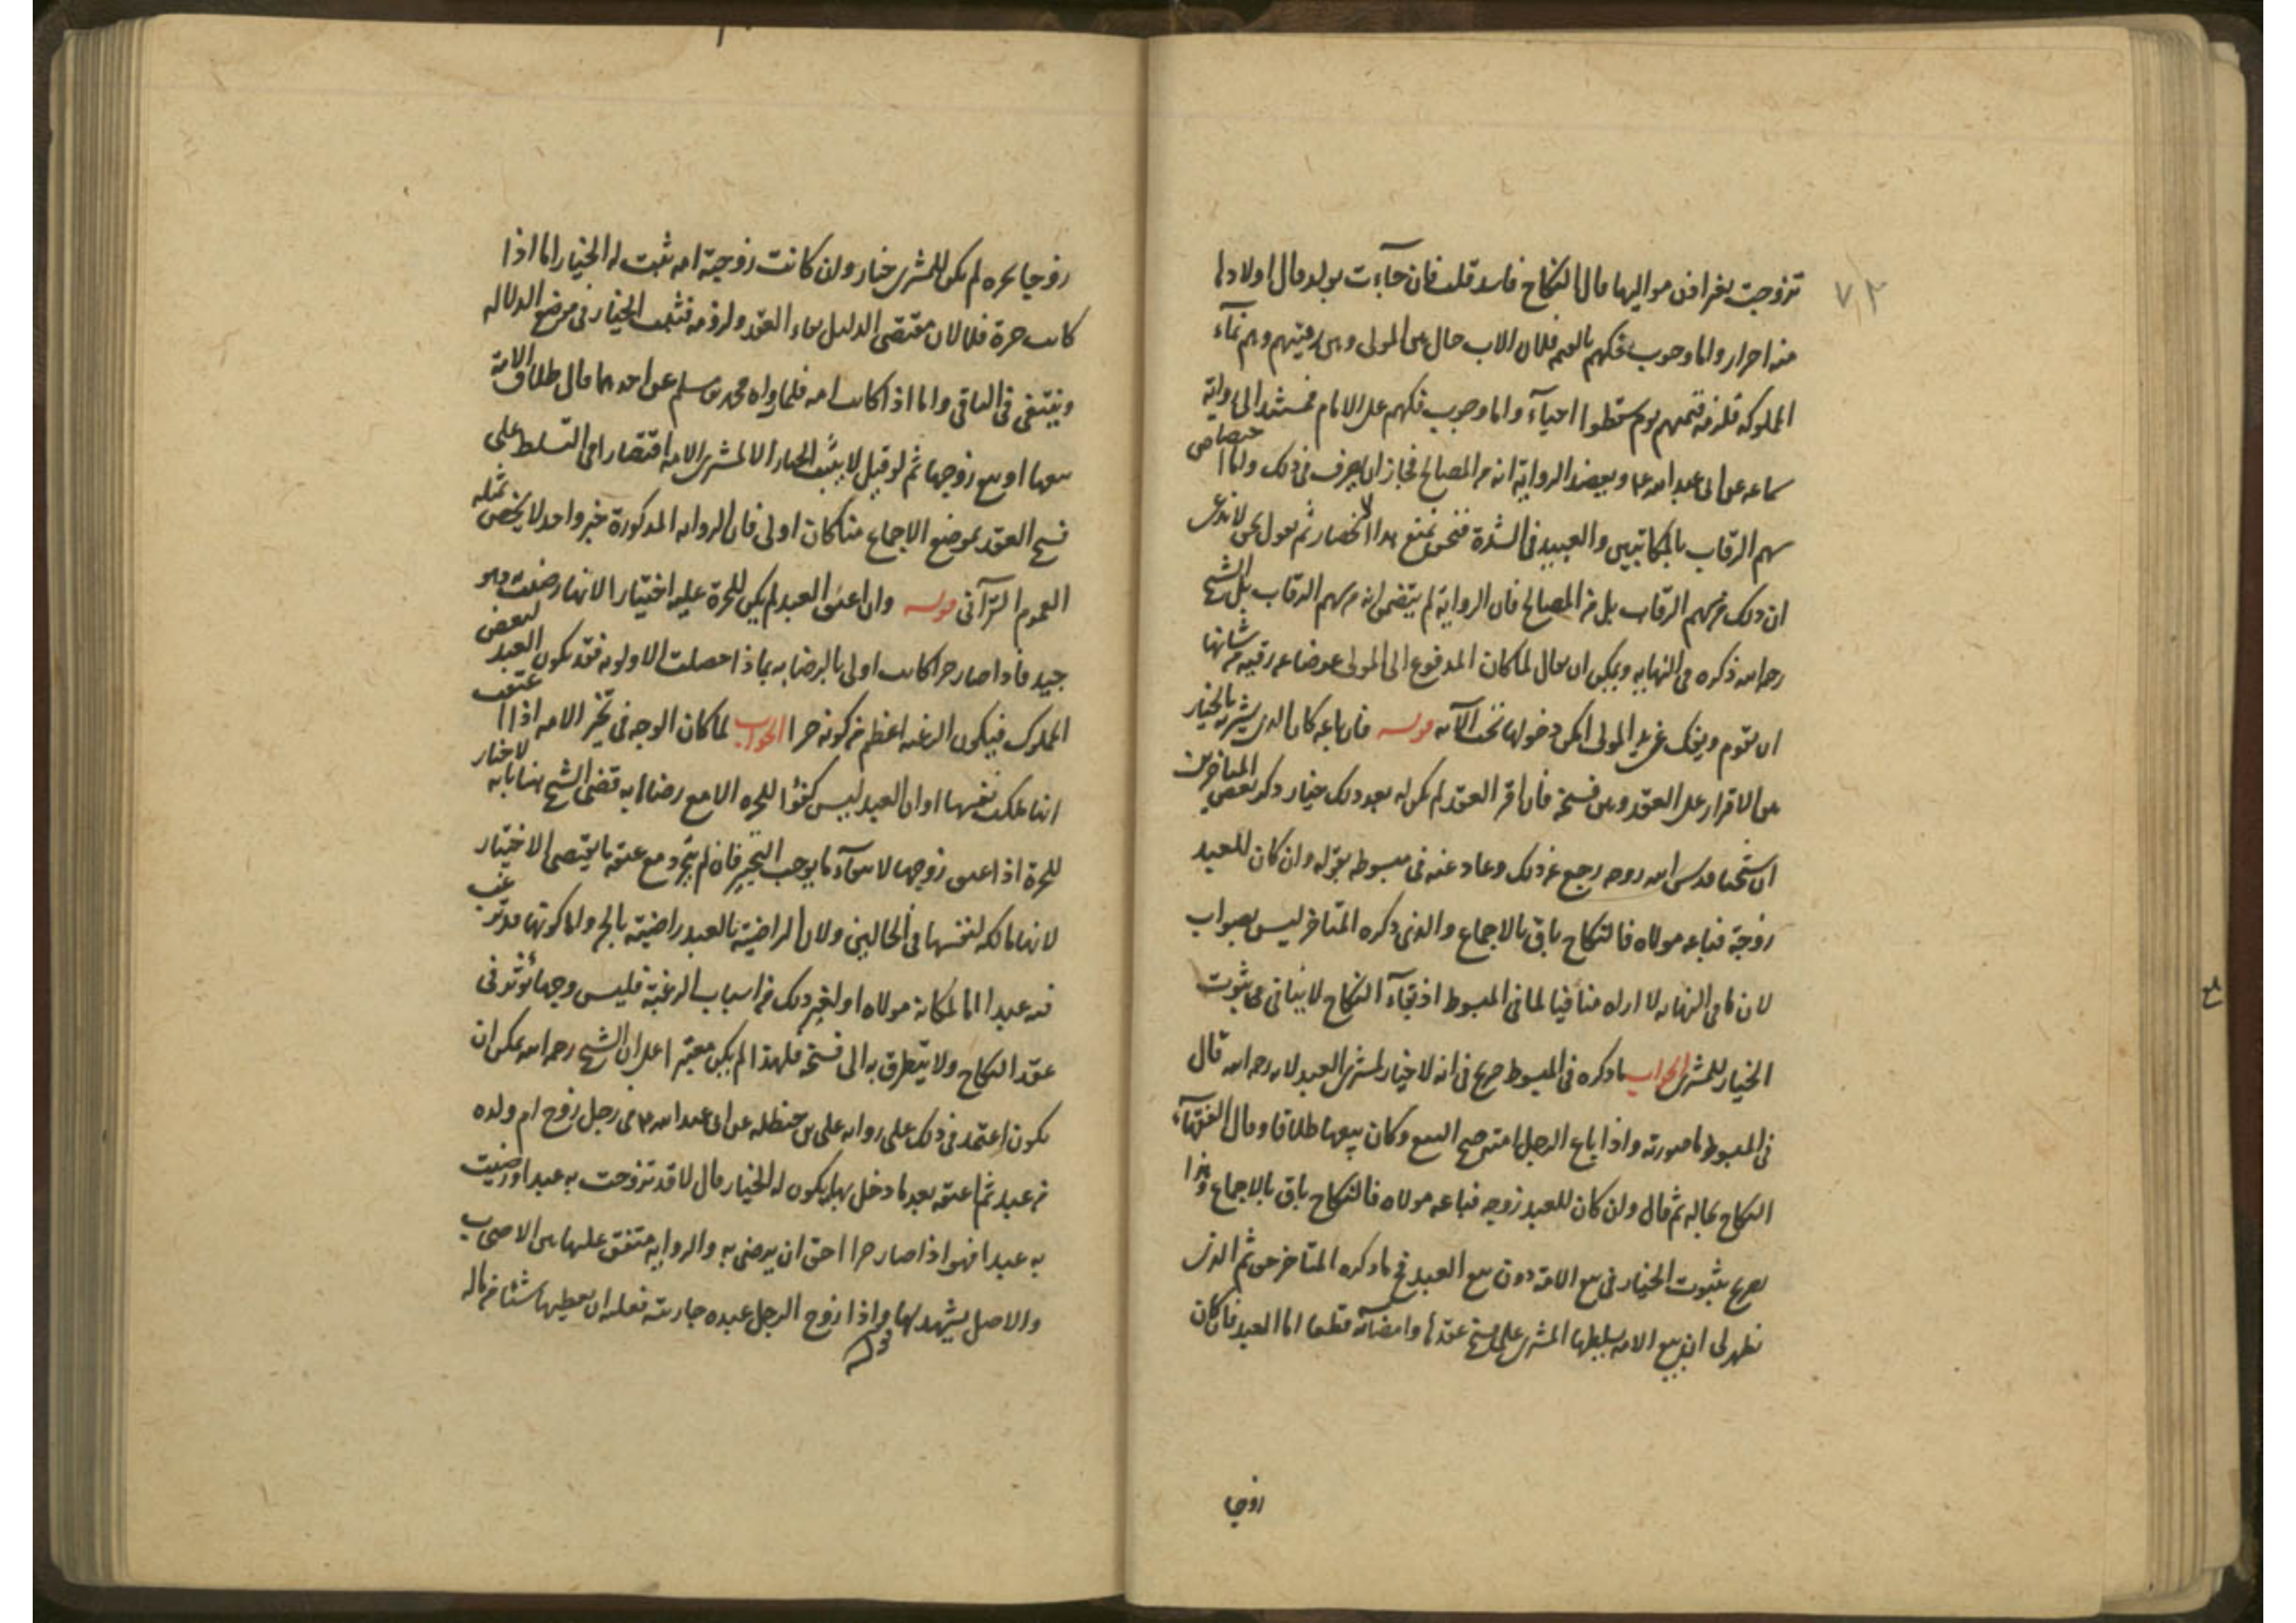 ٧٢
تزوجت بغير اذن مواليها قال النكاح فاسد قلت فان جاءت بولد قال اولادها
منه احرار واما وجوب فكهم بالقيم فلان الاب حال بين المولى وبين رقيتهم وهم نماء
المملوكة فلزمه قيمتهم يوم سقطوا احياء واما وجوب فكهم على الامام فمستنده الى رواية
سماعه عن ابي عبد الله ع ويعضد الرواية انه من المصالح فجاز ان يصرف في ذلك واما اختصاص
سهم الرقاب بالمكاتبين والعبيد في الشدة فنحن نمنع هذا الانحصار ثم نقول نحن لا ندعى
ان ذلك من سهم الرقاب بل من المصالح فان الرواية لم يتضمن انه من سهم الرقاب بل الشيخ
رحمه الله ذكره في النهايه ويمكن ان يقال لما كان المدفوع الى المولى عوضا عن رقبة من شانها
ان تقوم ويفك من يد المولى امكن دخولها تحت الآيه قوله فان باعه كان الذي يشتريه بالخيار
بين الاقرار على العقد وبين فسخه فان اقر العقد لم يكن له بعد ذلك خيار ذكر بعض المتاخرين
ان شيخنا قدس الله روحه رجع عن ذلك وعاد عنه في مبسوطه بقوله وان كان للعبد
زوجة فباعه مولاه فالنكاح باق بالاجماع والذي ذكره المتاخر ليس بصواب
لان ما في النهايه لا اراه منافيا لما في المبسوط اذ بقاء النكاح لا ينافي ثبوت
الخيار للمشتري الجواب ما ذكره في المبسوط صريح في انه لا خيار لمشتري العبد لانه رحمه الله قال
في المبسوط ما صورته واذا باع الرجل امته صح البيع وكان بيعها طلاقا وقال الفقهاء
النكاح بحاله ثم قال وان كان للعبد زوجه فباعه مولاه فالنكاح باق بالاجماع وهذا
تصريح بثبوت الخيار في بيع الامة دون بيع العبد فما ذكره المتاخر حق ثم الذي
يظهر لي ان بيع الامه يسلط المشتري على فسخ عقدها وامضائه قطعا اما العبد فان كان
زوجا
زوجا بحره لم يكن للمشتري خيار وان كانت زوجته امه ثبت له الخيار اما اذا
كانت حرة فلان مقتضى الدليل بقاء العقد ولزومه فثبت الخيار في موضع الدلاله
وينتفى في الباقي واما اذا كانت امه فلما رواه محمد بن مسلم عن احدهما قال طلاق الامة
بيعها او بيع زوجها ثم لو قيل لا يثبت الخيار الا لمشتري الامه اقتصارا في التسلط على
فسخ العقد بموضع الاجماع منا كان اولى فان الروايه المذكورة خبر واحد لا يخص بمثله
العموم القرآنى قوله وان اعتق العبد لم يكن للحرة عليه اختيار لانها رضيت به وهو
عبد فاذا صار حرا كانت اولى بالرضا به بماذا حصلت الاولويه فقد يكون العبد لبعض
الملوك فيكون الرغبه اعظم من كونه حرا الجواب لما كان الوجه في تخير الامه اذا اعتقت
انها ملكت نفسها او ان العبد ليس كفؤا للحره الا مع رضاها به قضى الشيخ هنا بانه لا خيار
للحرة اذا اعتق زوجها لانتفاء ما يوجب التخير فانه لم يتجدد مع عتقه ما يقتضى الاختيار
لانها مالكه لنفسها في الحالين ولان الراضية بالعبد راضية بالحر واما كونها قد ترغب
فيه عبدا اما لمكانة مولاه او لغير ذلك من اسباب الرغبة فليس وجها يؤثر في
عقد النكاح ولا يتطرق به الى فسخه فلهذا لم يكن معتبرا على ان الشيخ رحمه الله يمكن ان
يكون اعتمد في ذلك على روايه على بن حنظله عن ابي عبد الله ع في رجل زوج ام ولده
من عبد ثم اعتقه بعد ما دخل بها هل يكون لها الخيار قال لا قد تزوجت به عبدا ورضيت
به عبدا فهو اذا صار حرا احق ان يرضى به والروايه متفق عليها بين الاصحاب
والاصل يشهد لها واذا زوج الرجل عبده جاريته فعليه ان يعطيها شيئا من ماله